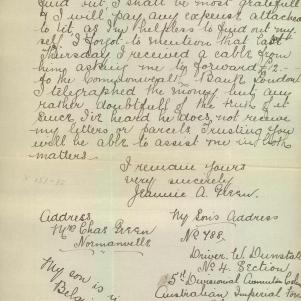 find out. I shall be most grateful
& I will pay any expense attached
to it as I'm helpless to find out my
self. I forgot to mention that last
Thursday I received a cable from
him asking me to forward £2-
to the Commonwealth Bank London
I telegraphed the money but am
rather doubtful of the truth of it
since I've heard he does not receive
my letters or parcels. Trusting you
will be able to assist me in both
matters
I remain yours
very sincerely
Jeannie A. Green.
Address
Mrs Chas Green
Normanville
My Son's Address
No 788.
Driver W. Dunstall
No. 4. Section
5th Divisional Ammution Col
Australian Imperial Force
My son is